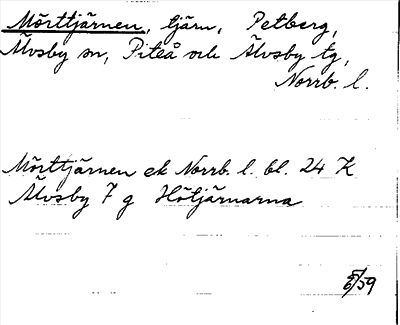 Mörttjärnen, tjärn, Petberg,
Älvsby sn, Piteå och Älvsby tg,
Norrb. l.
Mörttjärnen ek Norrb. l. bl. 24 K
Älvsby 7 g Hötjärnarna
59